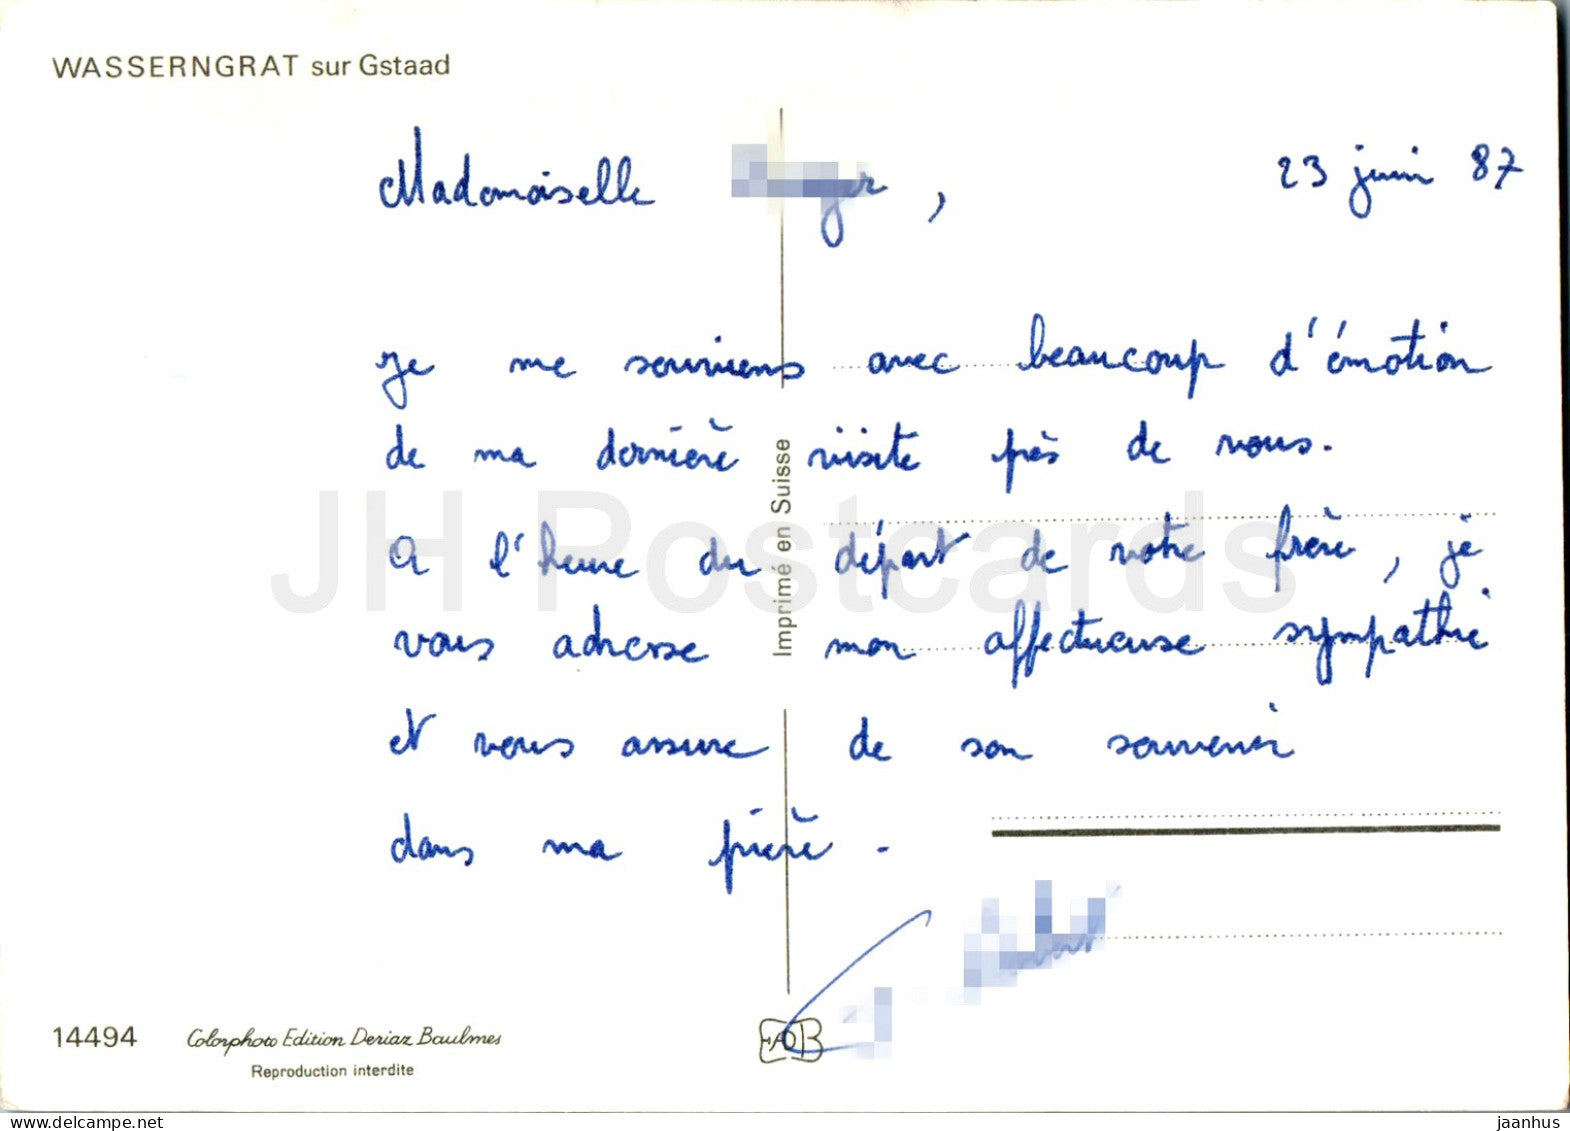 WASSERNGRAT sur Gstaad
Mademoiselle ,
23 juin 87
je me souviens avec beaucoup d'émotion
de ma dernière visite près de vous.
A l'heure du départ de votre frère, je
vous adresse mon affectueuse sympathie
et vous assure de son souvenir
dans ma prière.
Imprimé en Suisse
JH Postcards
14494
Colorphoto Edition Deriaz Baulmes
Reproduction interdite
www.delcampe.net
jaanhus